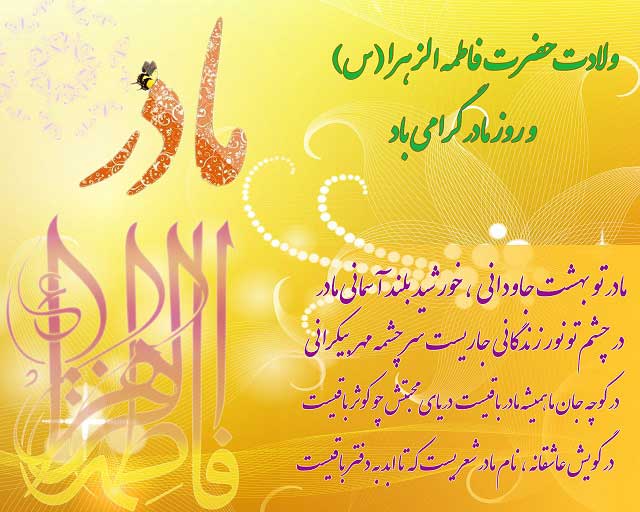 ولادت حضرت فاطمه الزهرا (س)
و روز مادر گرامی باد
مادر
مادر تو بهشت جاودانی ، خورشید بلند آسمانی مادر
در چشم تو نور زندگانی جاریست سرچشمه مهر بیکرانی
در کوچه جان ما همیشه مادر باقیست دریای محبتش چو کوثر باقیست
در گویش عاشقانه ، نام مادر شعریست که تا ابد به دفتر باقیست
فاطمه الزهرا